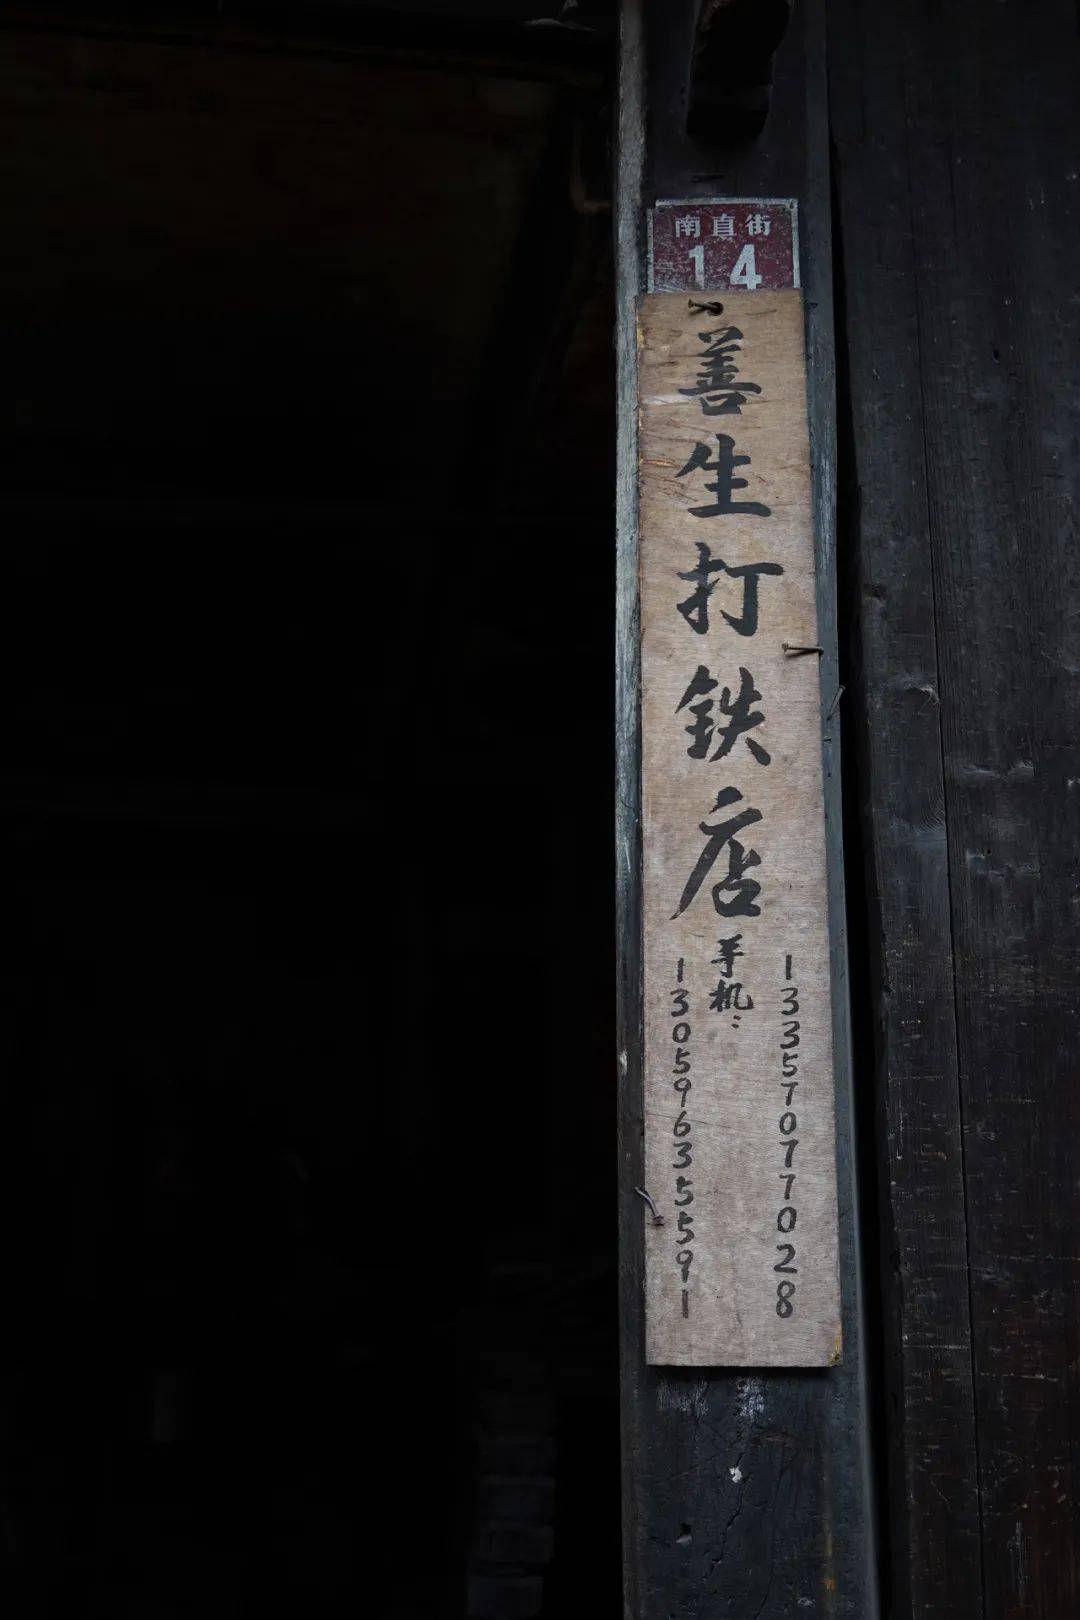 南直街
14
善生打铁店
手机:
13357077028
13059635591